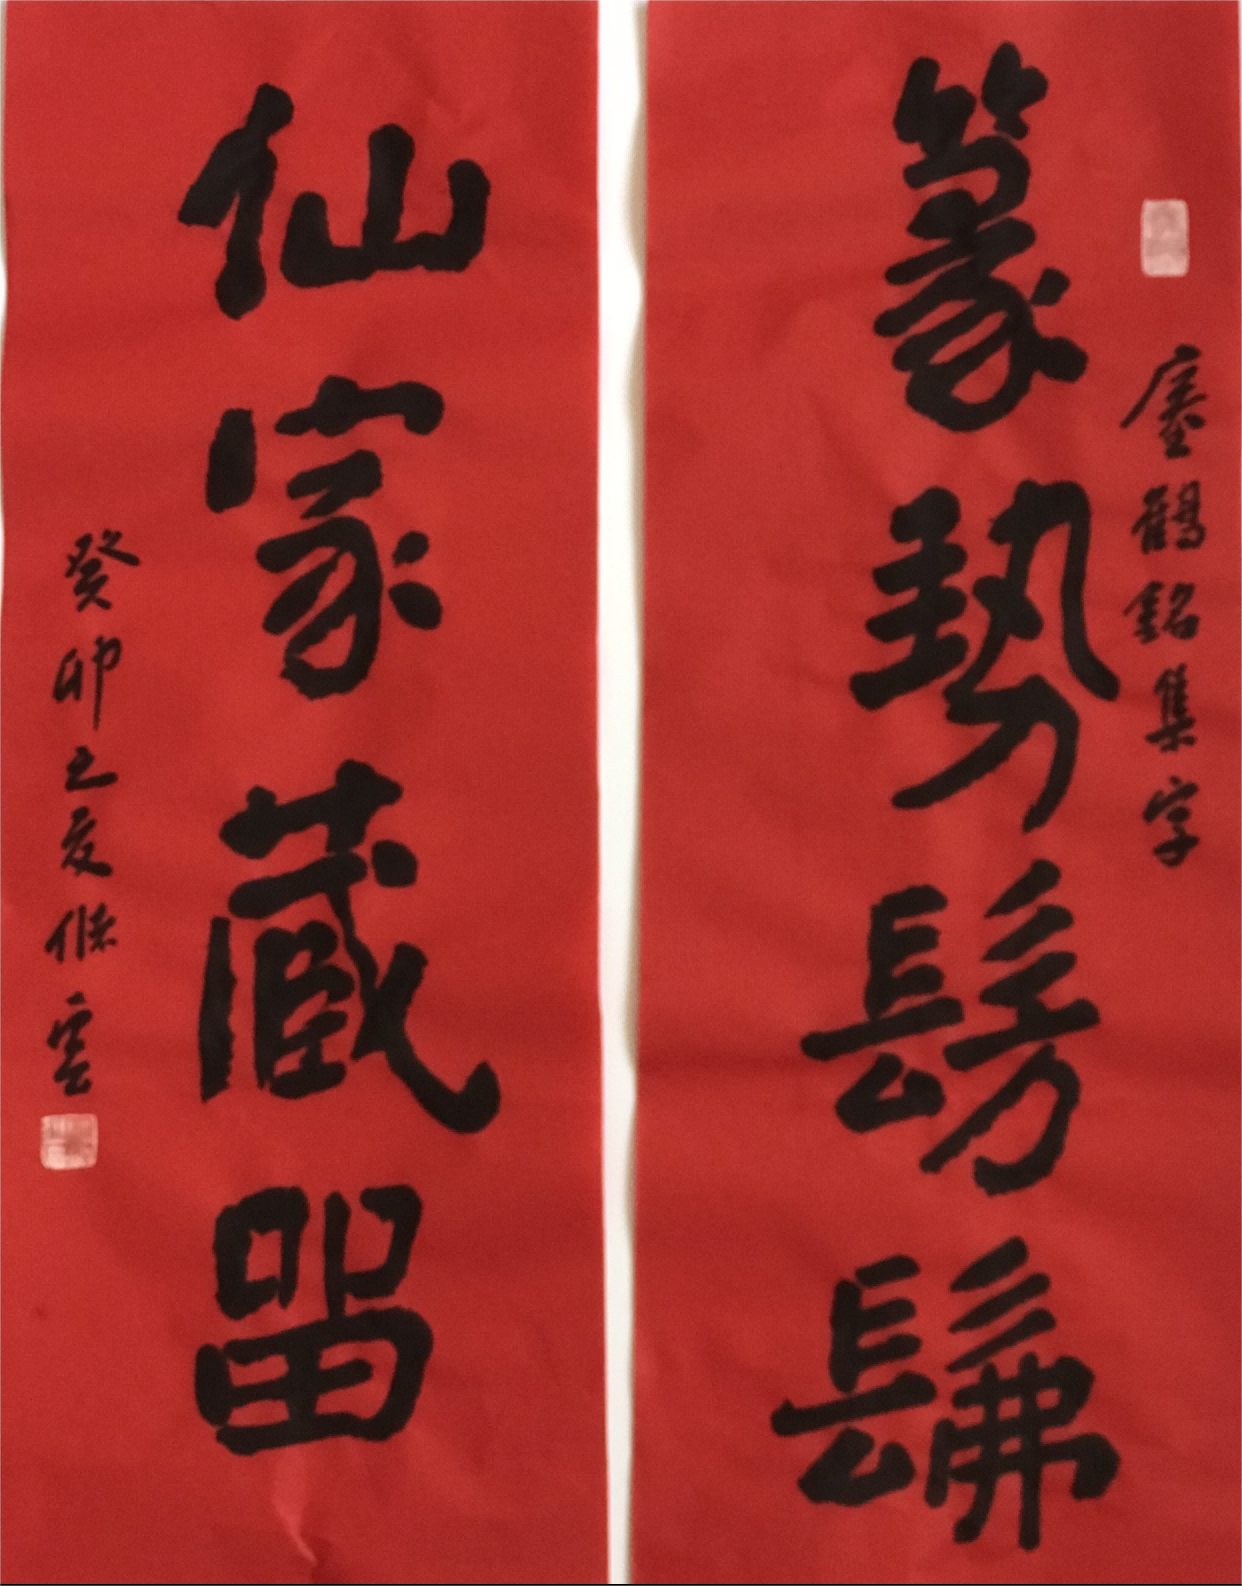 瘞鶴銘集字
篆勢髣髴
仙家藏留
癸卯之夏 雲